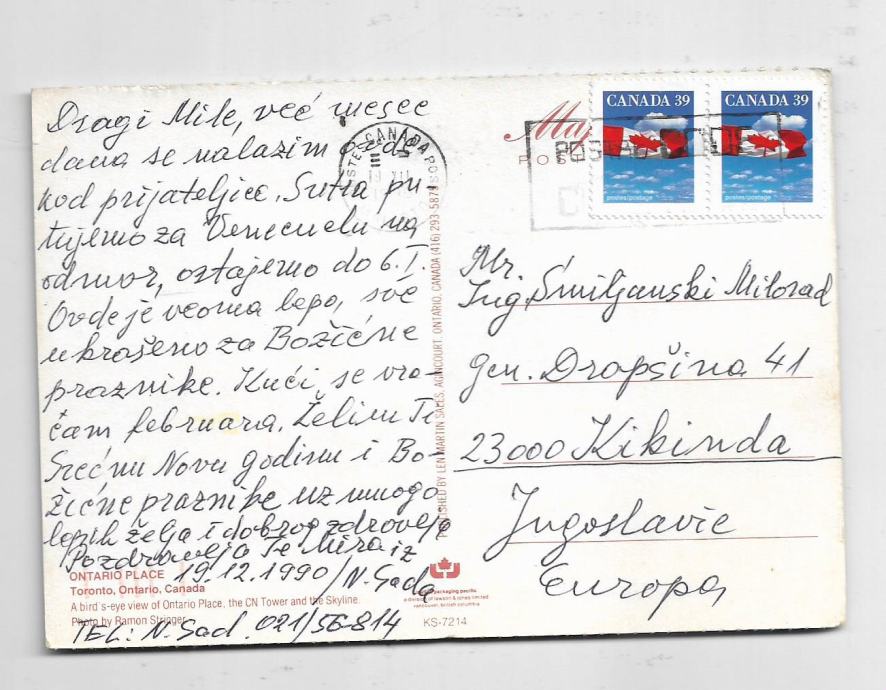 Dragi Mile, već mesec
dana se nalazim ovde
kod prijateljice. Sutra pu-
tujemo za Venecuelu na
odmor, ostajemo do 6.I.
Ovde je veoma lepo, sve
ukrašeno za Božićne
praznike. Kući se vra-
ćam februara. Želim Ti
Srećnu Novu godinu i Bo-
žićne praznike uz mnogo
lepih želja i dobrog zdravlja
Pozdravlja Te Mira iz
19.12.1990/N. Sada
ONTARIO PLACE
Toronto, Ontario, Canada
A bird's-eye view of Ontario Place, the CN Tower and the Skyline.
Photo by Ramon Stringer
TEL: N. Sad. 021/56-814
PUBLISHED BY LEN MARTIN SALES, AGINCOURT, ONTARIO, CANADA (416) 293-5873
CANADA
CANADA 39
postes/postage
CANADA 39
postes/postage
Mr.
Ing. Smiljanski Milorad
gen. Dropšina 41
23000 Kikinda
Jugoslavie
Europa
packaging pacific
a division of lawson & jones limited
vancouver, british columbia
KS-7214